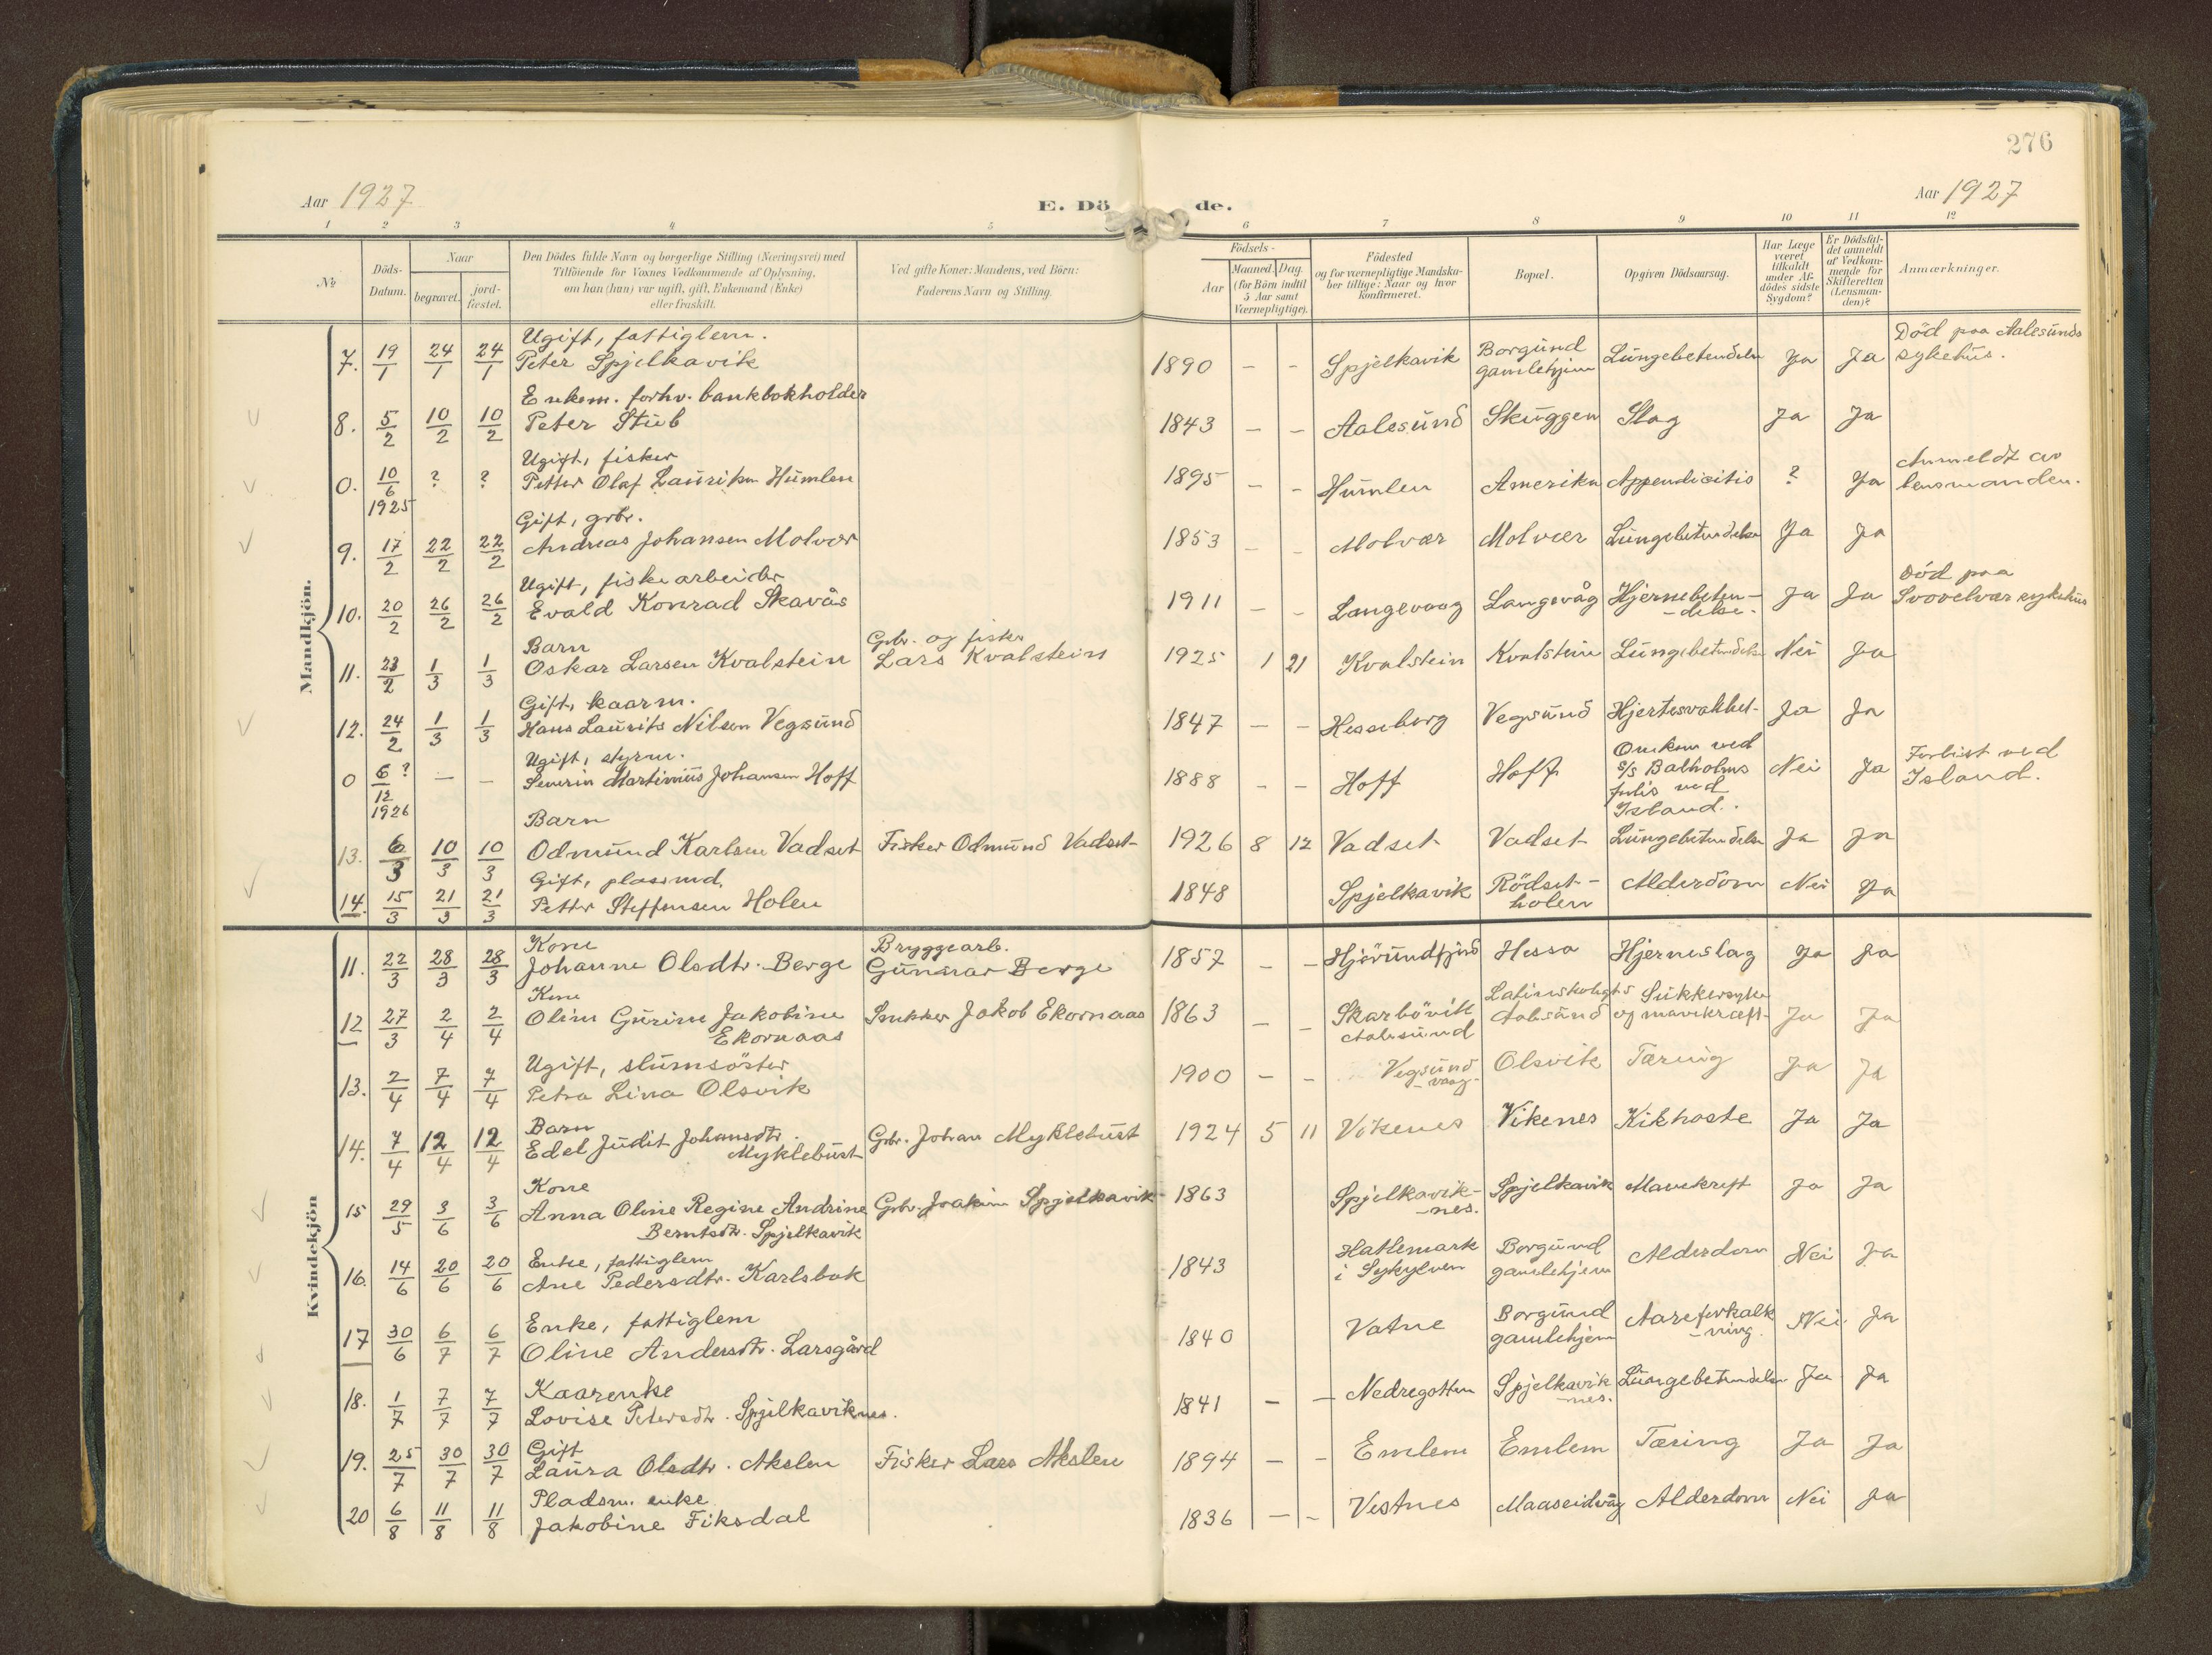 276
Aar 1927
E. Döde.
Aar 1927
1 2 3 4 5 6 7 8 9 10 11 12
No
Döds-Datum.
Naar
begravet.
jord-fæstet.
Den Dödes fulde Navn og borgerlige Stilling (Næringsvei) med
Tilföiende for Voxnes Vedkommende af Oplysning,
om han (hun) var ugift, gift, Enkemand (Enke)
eller fraskilt.
Ved gifte Koner: Mandens, ved Börn:
Faderens Navn og Stilling.
Födsels-
Aar
Maaned. Dag.
(for Börn indtil
5 Aar samt
Værnepligtige).
Födested
og for værnepligtige Mandska-
ber tillige: Naar og hvor
konfirmeret.
Bopæl.
Opgiven Dödsaarsag.
Har Læge
været
tilkaldt
under Af-
dödes sidste
Sygdom?
Er Dödsfal-
det anmeldt
af Vedkom-
mende for
Skifteretten
(Lensman-
den)?
Anmærkninger.
Mandkjön.
Ugift, fattiglem.
7. 19/1 24/1 24/1 Peter Spjelkavik 1890 – – Spjelkavik Borgund gamlehjem Lungebetendelse Ja Ja Död paa Aalesunds sykehus.
Enkem. forhv. bankbokholder
8. 5/2 10/2 10/2 Peter Stub 1843 – – Aalesund Skuggen Slag Ja Ja
Ugift, fisker
0. 10/6 1925 ? ? Petter Olaf Lauriksen Humlen 1895 – – Humlen Amerika Appendicitis ? Ja Anmeldt av lensmanden.
Gift, grbr.
9. 17/2 22/2 22/2 Andreas Johansen Molvær 1853 – – Molvær Molvær Lungebetendelse Ja Ja
Ugift, fiskearbeider
10. 20/2 26/2 26/2 Evald Konrad Skavås 1911 – – Langevaag Langevåg Hjernebeten-delse. Ja Ja Död paa Svovelvær sykehus
Barn Grbr. og fisker
11. 23/2 1/3 1/3 Oskar Larsen Kvalstein Lars Kvalstein 1925 1 21 Kvalstein Kvalstein Lungebetendelse Nei Ja
Gift, kaarm.
12. 24/2 1/3 1/3 Hans Laurits Nilsen Vegsund 1847 – – Hesseberg Vegsund Hjertesvakhet Ja Ja
Ugift, styrm.
0 6?/12 1926 – – Severin Martinius Johansen Hoff 1888 – – Hoff Hoff Omkom ved s/s Balholms forlis ved Island. Nei Ja Forlist ved Island.
Barn
13. 6/3 10/3 10/3 Odmund Karlsen Vadset Fisker Odmund Vadset 1926 8 12 Vadset Vadset Lungebetendelse Ja Ja
Gift, plassmd.
14. 15/3 21/3 21/3 Petter Steffensen Holen 1848 Spjelkavik Rödset-holen Alderdom Nei Ja
Kvindekjön
Kone Bryggearb.
11. 22/3 28/3 28/3 Johanne Olsdtr. Berge Gunnar Berge 1857 – – Hjörundfjord Hessa Hjerneslag Ja Ja
Kone
12 27/3 2/4 2/4 Oline Gurine Jakobine Ekornaas Snekker Jakob Ekornaas 1863 – – Skarbövik Aalesund Aalesund Sukkersyke og mavekræft Ja Ja
Ugift, slumsöster
13. 2/4 7/4 7/4 Petra Lina Olsvik 1900 – – Vegsund -vaag- Olsvik Tæring Ja Ja
Barn
14. 7/4 12/4 12/4 Edel Judit Johansdtr. Myklebust Grbr. Johan Myklebust 1924 5 11 Vikenes Vikenes Kikhoste Ja Ja
Kone
15 29/5 3/6 3/6 Anna Oline Regine Andrine Berntsdtr. Spjelkavik Grbr. Joakim Spjelkavik 1863 Spjelkavik-nes. Spjelkavik Mavekreft Ja Ja
Enke, fattiglem
16. 14/6 20/6 20/6 Ane Pedersdtr. Karlsbak 1843 Hatlemark i Sykylven Borgund gamlehjem Alderdom Nei Ja
Enke, fattiglem
17 30/6 6/7 6/7 Oline Andersdtr. Larsgård 1840 Vatne Borgund gamlehjem Aareforkalk-ning. Nei Ja
Kaarenke
18. 1/7 7/7 7/7 Lovise Petersdtr. Spjelkaviknes. 1841 – – Nedregotten Spjelkavik-nes. Lungebetendelse Ja Ja
Gift
19. 25/7 30/7 30/7 Laura Olsdtr. Akslen Fisker Lars Akslen 1894 – – Emlem Emlem Tæring Ja Ja
Pladsm. enke
20 6/8 11/8 11/8 Jakobine Fiksdal 1836 – – Vestnes Maaseidvåg Alderdom Nei Ja